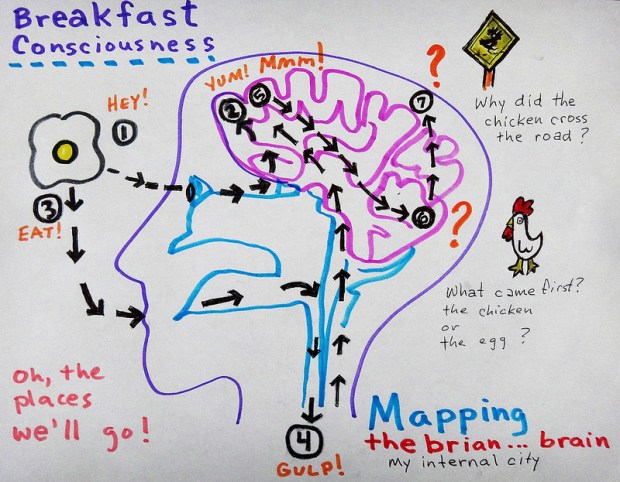 Breakfast
Consciousness
HEY!
1
3
EAT!
YUM!
2
Mmm!
5
?
7
6
?
4
GULP!
Why did the
chicken cross
the road?
What came first?
the chicken
or
the egg?
oh, the
places
we'll go!
Mapping
the brian... brain
my internal city